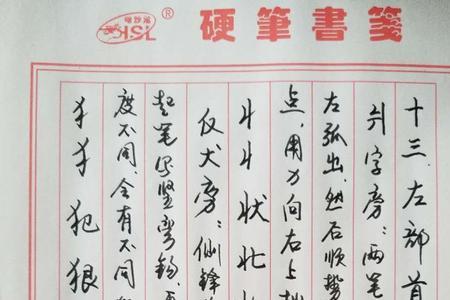 硬筆書箋
®
HSL
十三、左部首
丬字旁：两笔
左弧出，然后顺势
点，用力向右上
丬丬状
反犬旁：侧锋
起笔写竖弯钩，
度不同，会有不同
犭犭犯狠